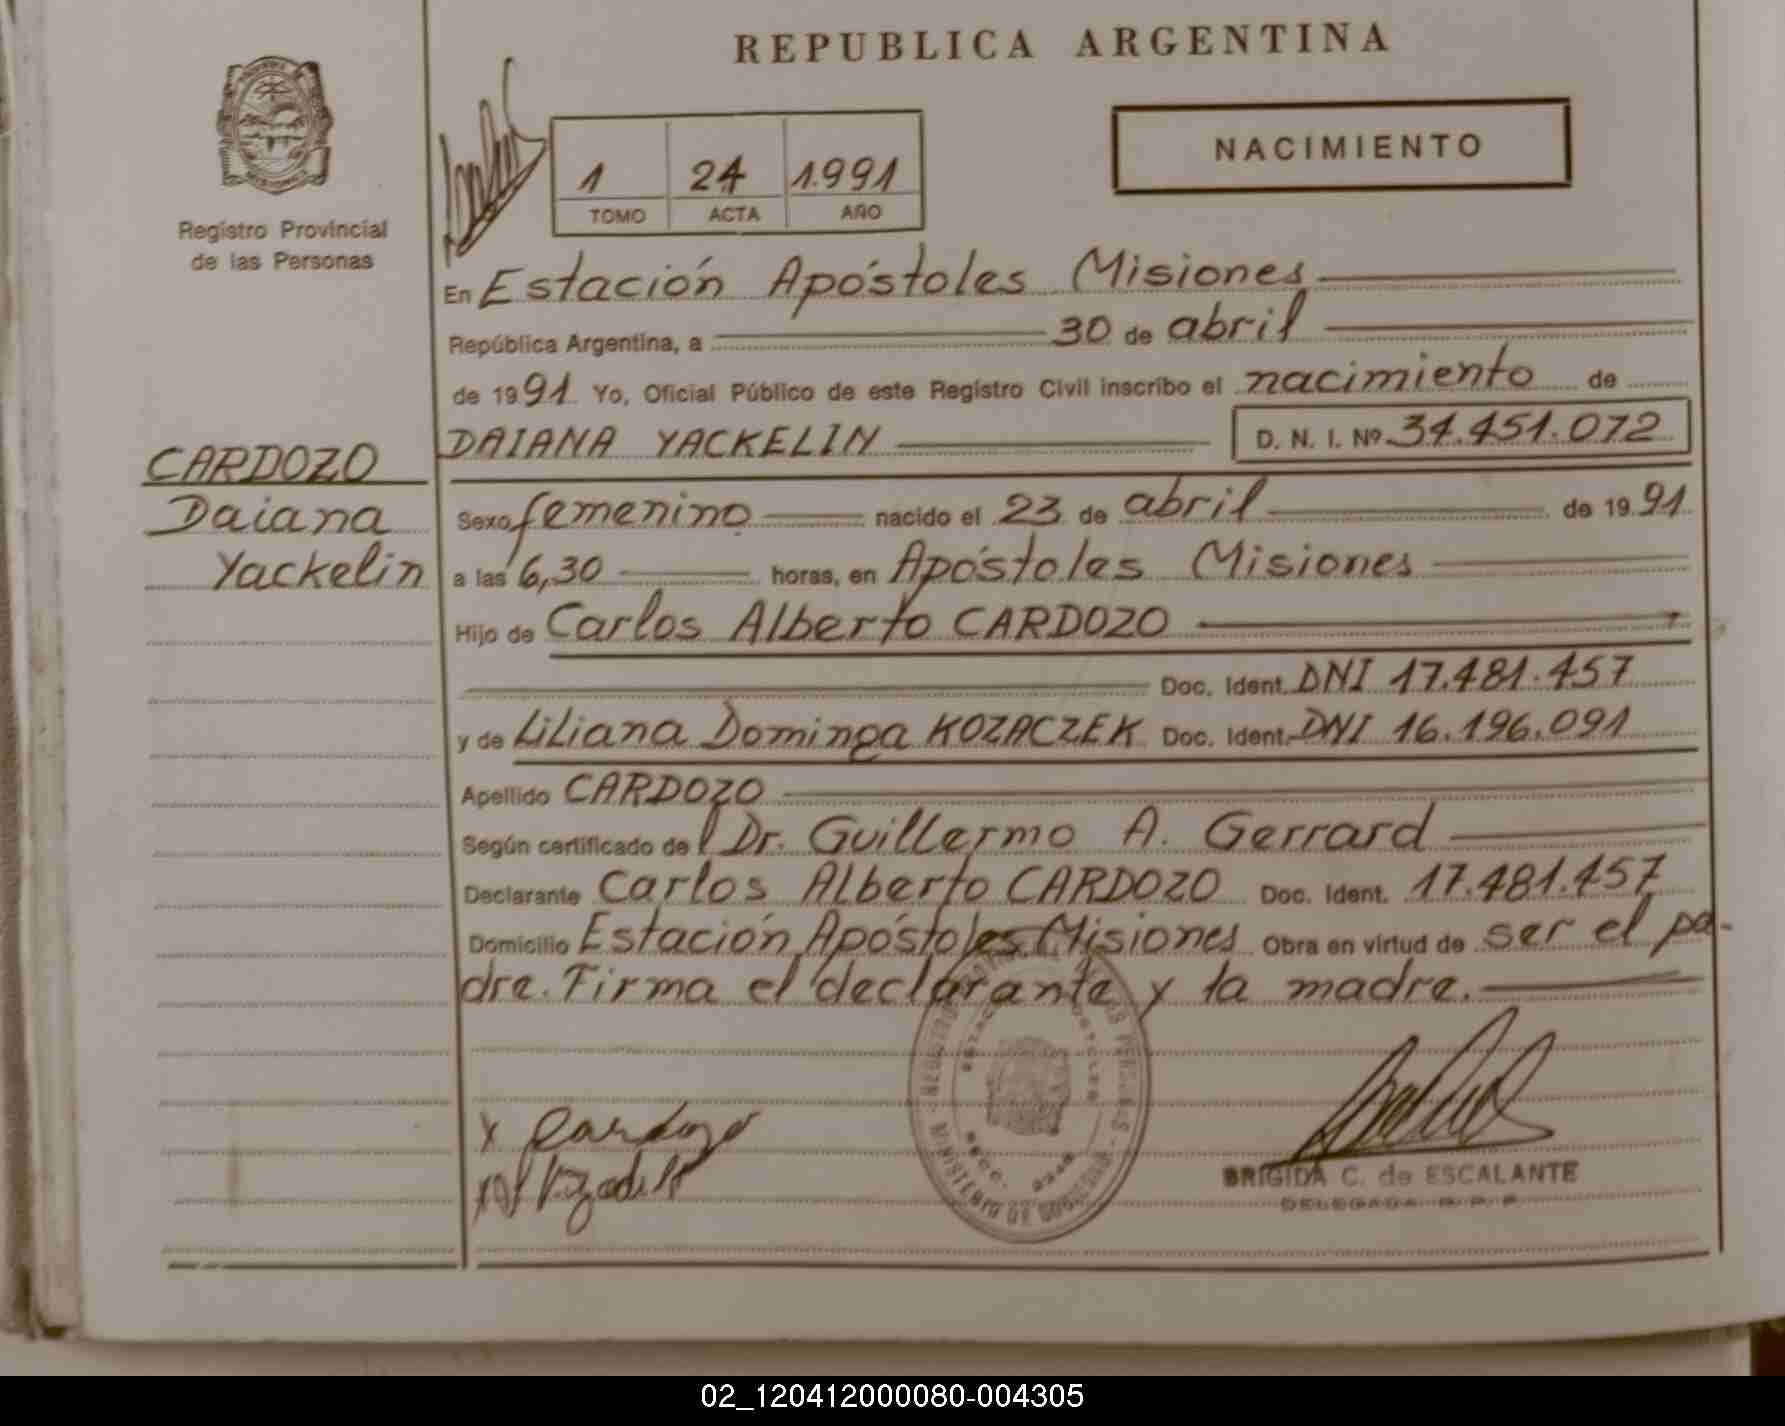 REPUBLICA ARGENTINA
NACIMIENTO
1 24 1.991
TOMO ACTA AÑO
Registro Provincial
de las Personas
En Estación Apóstoles Misiones
República Argentina, a 30 de abril
de 1991 Yo, Oficial Público de este Registro Civil inscribo el nacimiento de
DAIANA YACKELIN D. N. I. Nº 34.451.072
CARDOZO
Daiana
Yackelin
Sexo femenino nacido el 23 de abril de 1991
a las 6,30 horas, en Apóstoles Misiones
Hijo de Carlos Alberto CARDOZO
Doc. Ident. DNI 17.481.457
y de Liliana Dominga KOZACZEK Doc. Ident. DNI 16.196.091
Apellido CARDOZO
Según certificado del Dr. Guillermo A. Gerrard
Declarante Carlos Alberto CARDOZO Doc. Ident. 17.481.457
Domicilio Estación Apóstoles Misiones Obra en virtud de ser el pa-
dre. Firma el declarante y la madre.
x Cardozo
BRIGIDA C. de ESCALANTE
DELEGADA R. P. P.
02_120412000080-004305